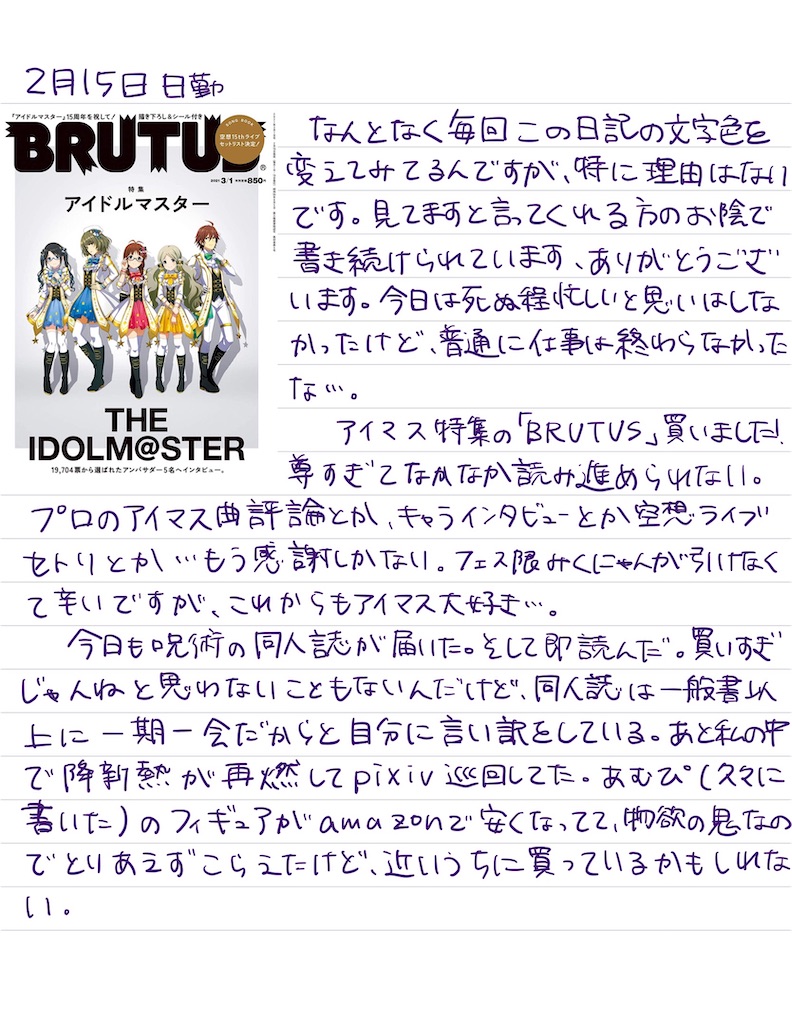 2月15日 日勤
「アイドルマスター」15周年を祝して! 描き下ろし&シール付き
SONG BOOK
空想15thライブ
セットリスト決定!
BRUTUS
2021 3/1 850円
特集
アイドルマスター
THE
IDOLM@STER
19,704票から選ばれたアンバサダー5名へインタビュー。
なんとなく毎回この日記の文字色を
変えてみてるんですが、特に理由はない
です。見てますと言ってくれる方のお陰で
書き続けられています、ありがとうござ
います。今日は死ぬ程忙しいと思いはしな
かったけど、普通に仕事は終わらなかった
な…。
アイマス特集の「BRUTUS」買いました!
尊すぎてなかなか読み進められない。
プロのアイマス曲評論とか、キャラインタビューとか空想ライブ
セトリとか…もう感謝しかない。フェス限みくにゃんが引けなく
て辛いですが、これからもアイマス大好き…。
今日も呪術の同人誌が届いた。そして即読んだ。買いすぎ
じゃんねと思わないこともないんだけど、同人誌は一般書以
上に一期一会だからと自分に言い訳をしている。あと私の中
で降新熱が再燃してpixiv巡回してた。あむぴ(久々に
書いた)のフィギュアがamazonで安くなってて、物欲の鬼なの
でとりあえずこらえたけど、近いうちに買っているかもしれな
い。